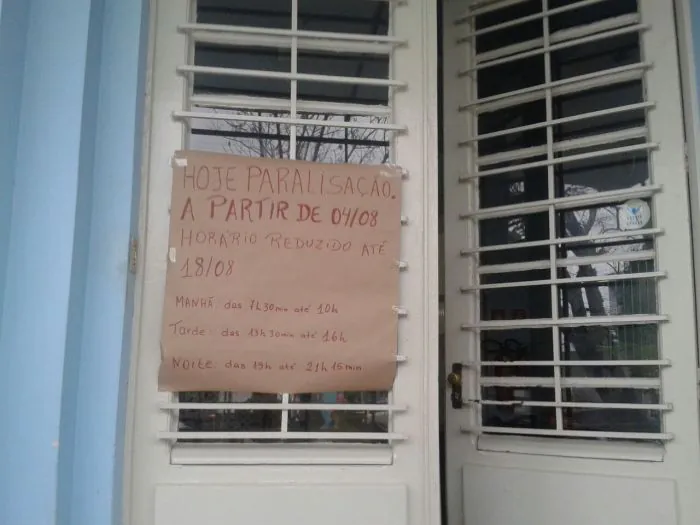 HOJE PARALISAÇÃO.
A PARTIR DE 04/08
HORÁRIO REDUZIDO ATÉ
18/08
MANHÃ: das 7h30min até 10h
Tarde: das 13h30min até 16h
NOITE: das 19h até 21h15min